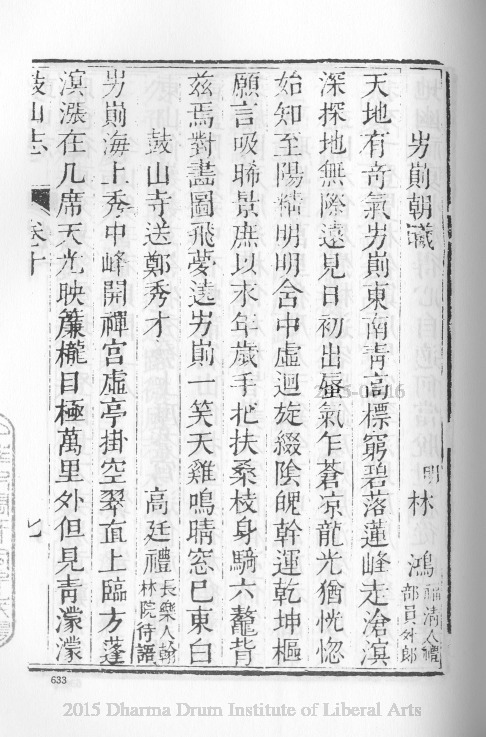 屴崱朝曦
明 林 鴻 福清人禮部員外郎
天地有奇氣屴崱東南青高標窮碧落蓮峰走滄溟
深探地無際遠見日初出蜃氣乍蒼凉龍光猶恍惚
始知至陽精明明舍中虛迴旋綴陰魄幹運乾坤樞
願言吸晞景庶以永年歲手把扶桑枝身騎六鼇背
兹焉對畫圖飛夢遶屴崱一笑天雞鳴晴窓巳東白
鼓山寺送鄭秀才
高廷禮 長樂人翰林院待詔
屴崱海上秀中峰開禪宮虛亭掛空翠直上臨方蓬
溟漲在几席天光映簾櫳目極萬里外但見青濛濛
鼓山志 卷十 七
633
2015 Dharma Drum Institute of Liberal Arts